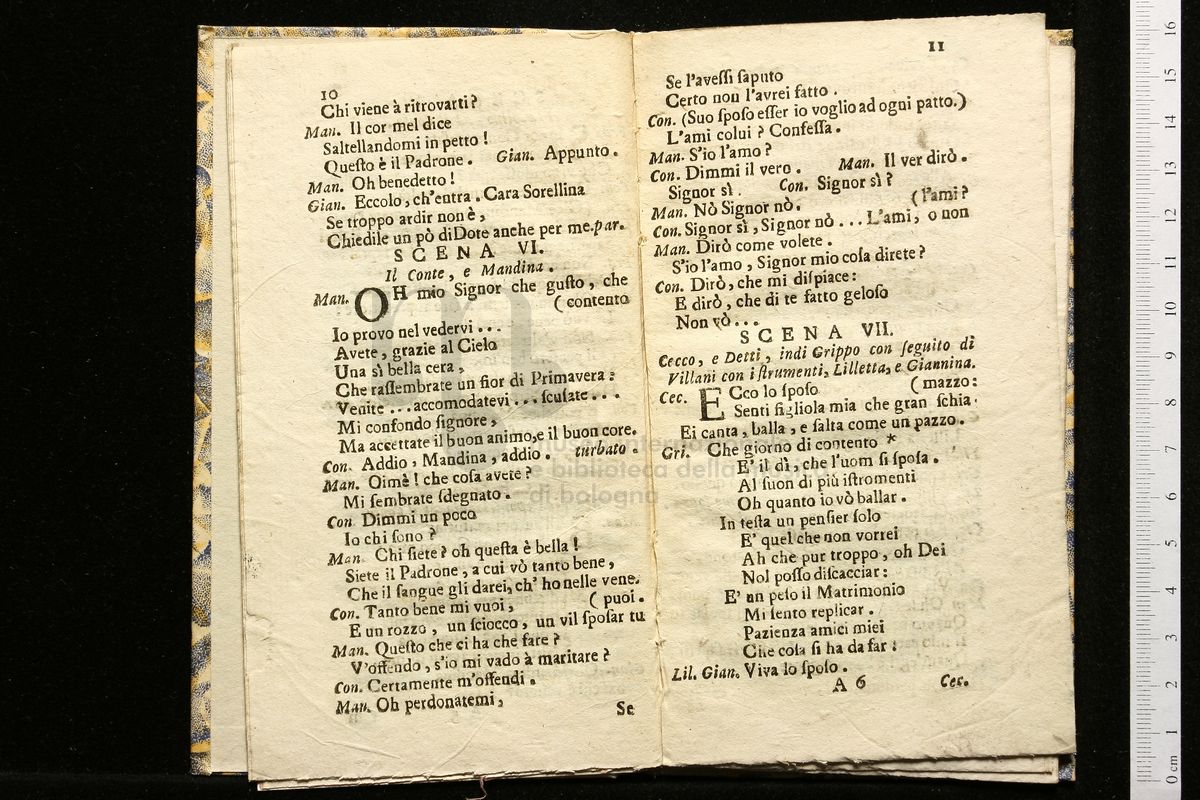 10
Chi viene à ritrovarti?
Man. Il cor mel dice
Saltellandomi in petto!
Queſto è il Padrone. Gian. Appunto.
Man. Oh benedetto!
Gian. Eccolo, ch'entra. Cara Sorellina
Se troppo ardir non è,
Chiedile un pò di Dote anche per me. par.
SCENA VI.
Il Conte, e Mandina.
Man. OH mio Signor che guſto, che
(contento
Io provo nel vedervi...
Avete, grazie al Cielo
Una sì bella cera,
Che raſſembrate un fior di Primavera:
Venite...accomodatevi...ſcuſate...
Mi confondo ſignore,
Ma accettate il buon animo, e il buon core.
Con. Addio, Mandina, addio. turbato.
Man. Oimè! che coſa avete?
Mi ſembrate ſdegnato.
Con. Dimmi un poco
Io chi ſono?
Man. Chi ſiete? oh queſta è bella!
Siete il Padrone, a cui vò tanto bene,
Che il ſangue gli darei, ch' ho nelle vene.
Con. Tanto bene mi vuoi, (puoi.
E un rozzo, un ſciocco, un vil ſpoſar tu
Man. Queſto che ci ha che fare?
V'offendo, s'io mi vado à maritare?
Con. Certamente m'offendi.
Man. Oh perdonatemi,
Se
11
Se l'aveſſi ſaputo
Certo non l'avrei fatto.
Con. (Suo ſpoſo eſſer io voglio ad ogni patto.)
L'ami colui? Confeſſa.
Man. S'io l'amo?
Con. Dimmi il vero. Man. Il ver dirò.
Signor sì. Con. Signor sì?
Man. Nò Signor nò. (l'ami?
Con. Signor sì, Signor nò...L'ami, o non
Man. Dirò come volete.
S'io l'amo, Signor mio coſa direte?
Con. Dirò, che mi diſpiace:
E dirò, che di te fatto geloſo
Non vò...
SCENA VII.
Cecco, e Detti, indi Grippo con ſeguito di
Villani con iſtrumenti, Lilletta, e Giannina.
Cec. ECco lo ſpoſo (mazzo:
Senti figliola mia che gran ſchia-
Ei canta, balla, e ſalta come un pazzo.
Gri. Che giorno di contento *
E' il dì, che l'uom ſi ſpoſa.
Al ſuon di più iſtromenti
Oh quanto io vò ballar.
In teſta un penſier ſolo
E' quel che non vorrei
Ah che pur troppo, oh Dei
Nol poſſo diſcacciar:
E' un peſo il Matrimonio
Mi ſento replicar.
Pazienza amici miei
Che coſa ſi ha da far?
Lil. Gian. Viva lo ſpoſo.
A 6 Cec.
museo internazionale
e biblioteca della musica
di bologna
0 cm 1 2 3 4 5 6 7 8 9 10 11 12 13 14 15 16